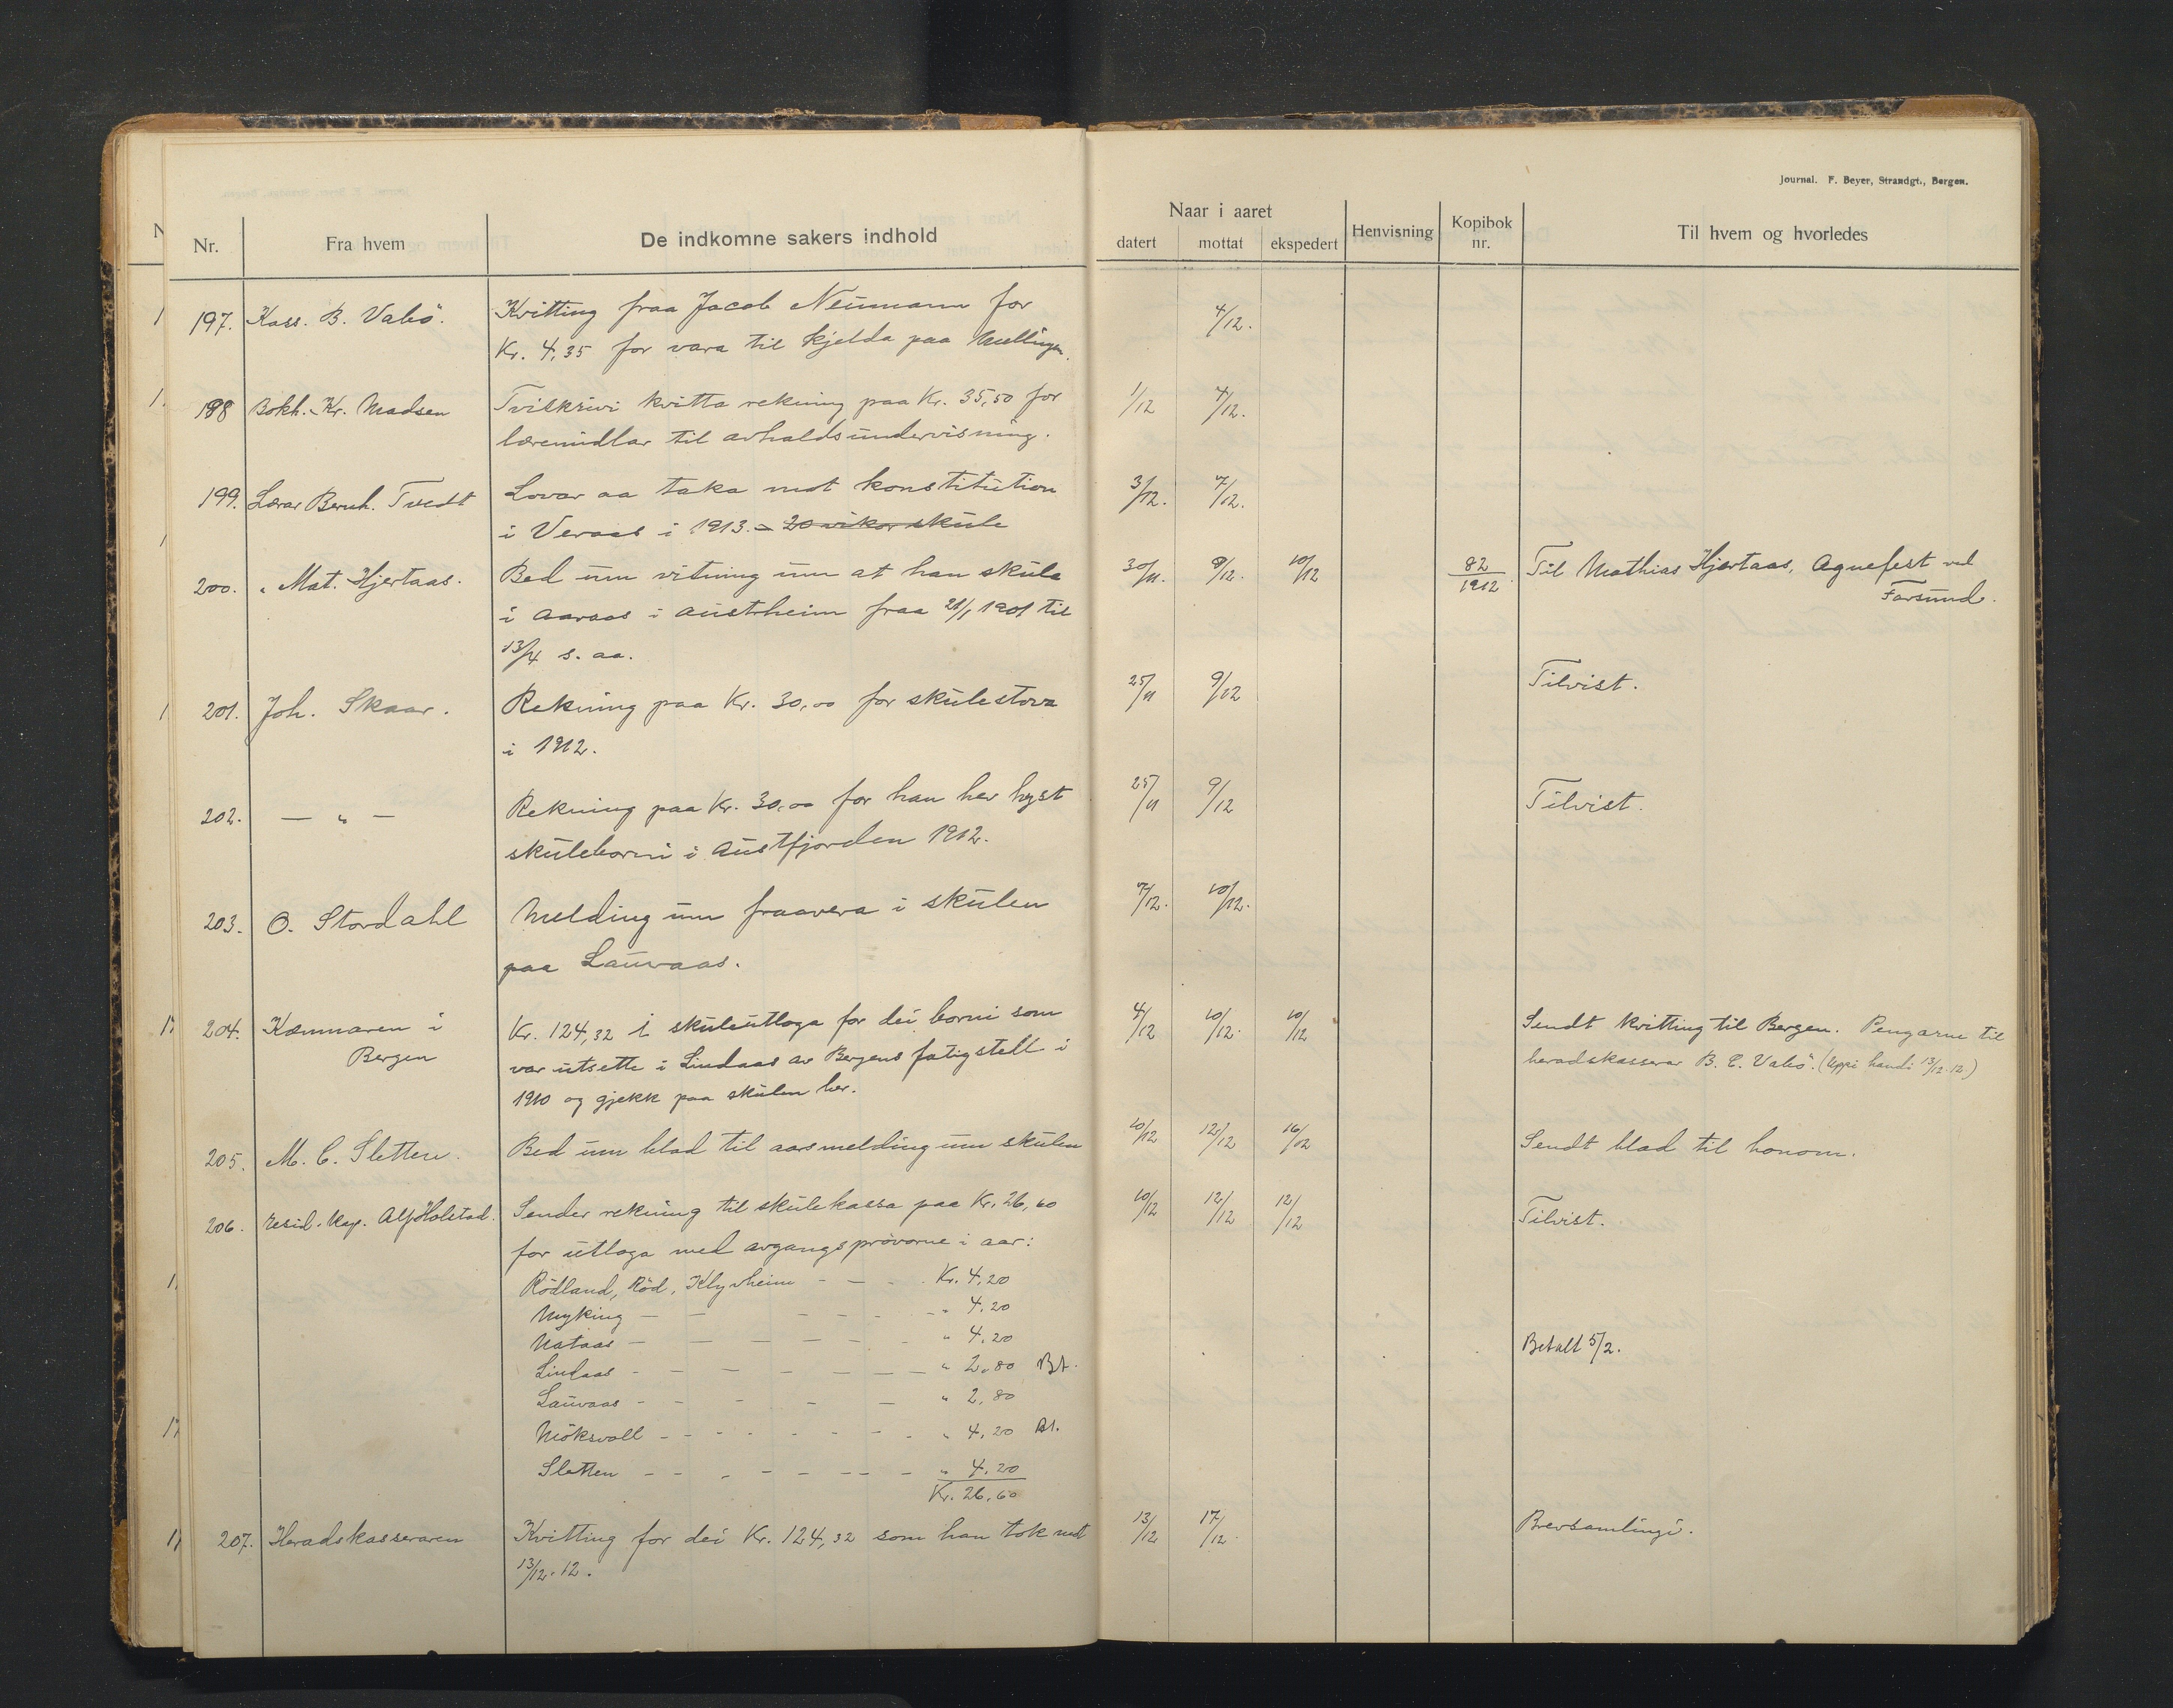 Journal. F. Beyer, Strandgt., Bergen.
Nr. Fra hvem De indkomne sakers indhold Naar i aaret datert mottat ekspedert Henvisning Kopibok nr. Til hvem og hvorledes
197. Kass. B. Valsö. Kvitting fraa Jacob Neumann for 4/12.
Kr. 4,35 for vara til kjelda paa Mellingen.
198 Bokh. Kr. Madsen Tviskrivi kvitta rekning paa Kr. 35,50 for 1/12 4/12.
læremidlar til avhaldsundervisning.
199. Lærar Bernh. Tvedt Lovar aa taka mot konstitution 3/12. 7/12.
i Veraas i 1913. – 20 vikor skule
200. „ Mat. Hjertaas. Bed um vitning um at han skula 30/11. 9/12. 10/12 82/1912. Til Mathias Hjertaas, Agnefest ved
i Aaraas i Austrheim fraa 21/1 1901 til Farsund.
13/4 s. aa.
201. Joh. Skaar. Rekning paa Kr. 30,00 for skulestova 25/11 9/12 Tilvist.
i 1912.
202. — „ — Rekning paa Kr. 30,00 for han hev hyst 25/11 9/12 Tilvist.
skuleborni i Austfjorden 1912.
203. O. Stordahl Melding um fraavera i skulen 7/12. 10/12.
paa Lauvaas.
204. Kæmnaren i Kr. 124,32 i skuleutloga for dei borni som 4/12 10/12. 10/12 Sendt kvitting til Bergen. Pengarne til
Bergen var utsette i Lindaas av Bergens fatigstell i heradskasserar B. C. Valsö. (Uppi handi 13/12.12)
1910 og gjekk paa skulen her.
205. M. C. Sletten. Bed um blad til aarsmelding um skulen 10/12 12/12 16/12 Sendt blad til honom.
206. resid. kap. Alf Holstad. Sender rekning til skulekassa paa Kr. 26,60 10/12 12/12 12/12 Tilvist.
for utloga med avgangsprövorne i aar:
Rödland, Röd, Klyvheim – — – Kr. 4,20
Myking — – – – – „ 4,20
Nataas — – – – – „ 4,20 Betalt 5/2.
Lindaas – – – – – – „ 2,80 Bt.
Lauvaas – – – – – „ 2,80
Möksvoll – – – – – – – „ 4,20 Bt.
Sletten – – – – – – – „ 4,20
Kr. 26,60
207. Heradskasseraren Kvitting for dei Kr. 124,32 som han tok mot 13/12 17/12. Brevsamlingi.
13/12.12.